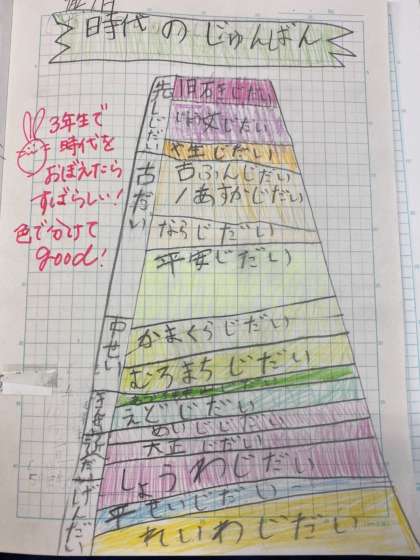 時代のじゅんばん
3年生で
時代を
おぼえたら
すばらしい!
色で分けて
good!
旧石きじだい
じょう文じだい
や生じだい
古だい
古ふんじだい
/あすかじだい
ならじだい
平安じだい
中せい
かまくらじだい
むろまちじだい
えどじだい
めいじじだい
大正じだい
しょうわじだい
平せいじだい
れいわじだい